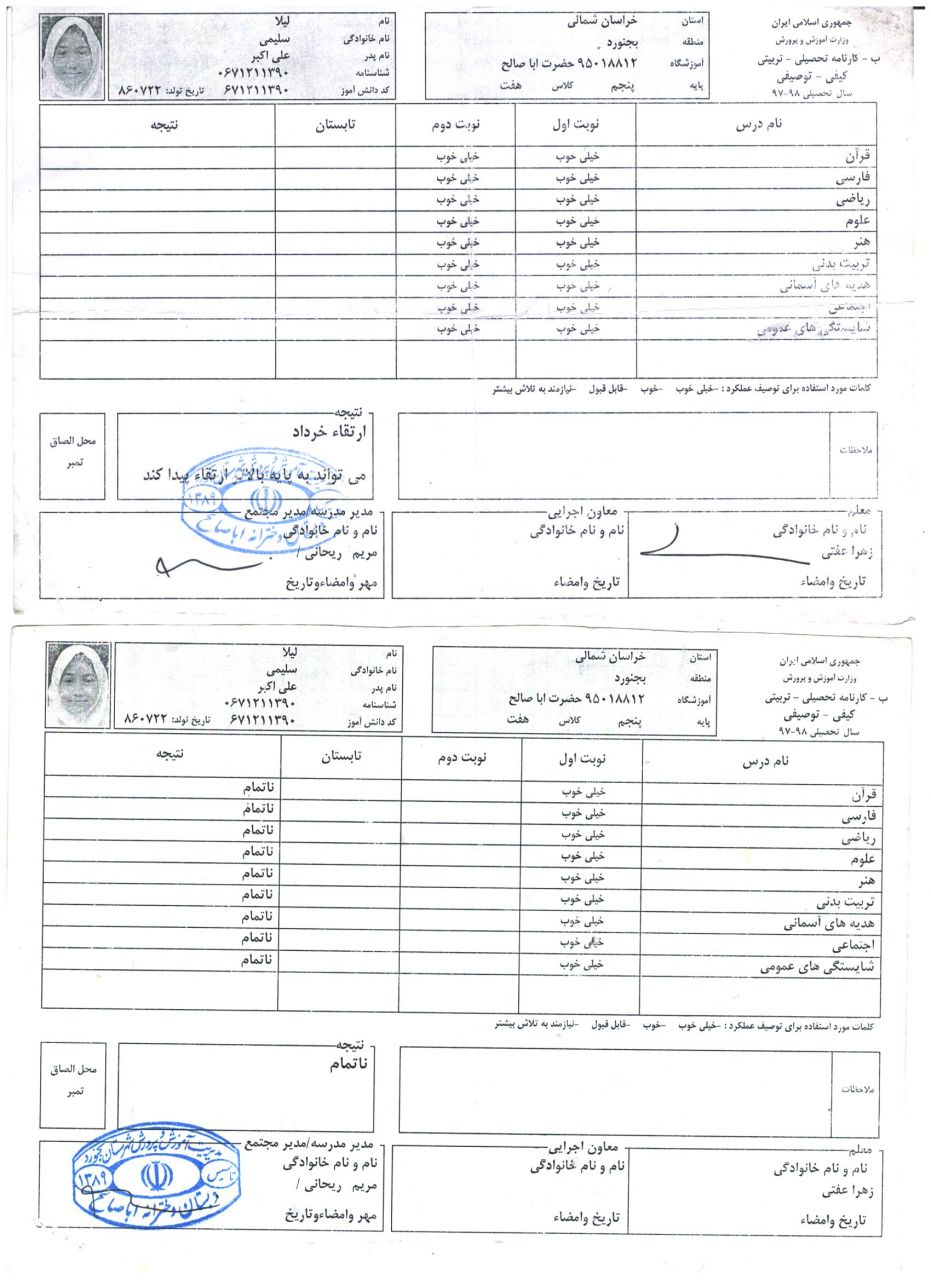 جمهوری اسلامی ایران
وزارت آموزش و پرورش
ب - کارنامه تحصیلی - تربیتی
کیفی - توصیفی
سال تحصیلی ۹۸-۹۷
استان خراسان شمالی
منطقه بجنورد
آموزشگاه ۹۵۰۱۸۸۱۲ حضرت ابا صالح
پایه پنجم کلاس هفت
نام لیلا
نام خانوادگی سلیمی
نام پدر علی اکبر
شناسنامه ۰۶۷۱۲۱۱۳۹۰
کد دانش آموز ۶۷۱۲۱۱۳۹۰ تاریخ تولد: ۸۶۰۷۲۲
نام درس نوبت اول نوبت دوم تابستان نتیجه
قرآن خیلی خوب خیلی خوب
فارسی خیلی خوب خیلی خوب
ریاضی خیلی خوب خیلی خوب
علوم خیلی خوب خیلی خوب
هنر خیلی خوب خیلی خوب
تربیت بدنی خیلی خوب خیلی خوب
هدیه های آسمانی خیلی خوب خیلی خوب
اجتماعی خیلی خوب خیلی خوب
شایستگی های عمومی خیلی خوب خیلی خوب
کلمات مورد استفاده برای توصیف عملکرد : -خیلی خوب -خوب -قابل قبول -نیازمند به تلاش بیشتر
ملاحظات
نتیجه
ارتقاء خرداد
می تواند به پایه بالاتر ارتقاء پیدا کند
محل الصاق
تمبر
معلم
نام و نام خانوادگی
زهرا عفتی
تاریخ وامضاء
معاون اجرایی
نام و نام خانوادگی
تاریخ وامضاء
مدیر مدرسه/مدیر مجتمع
نام و نام خانوادگی
مریم ریحانی /
مهر وامضاءوتاریخ
۱۳۸۹
دخترانه اباصالح
جمهوری اسلامی ایران
وزارت آموزش و پرورش
ب - کارنامه تحصیلی - تربیتی
کیفی - توصیفی
سال تحصیلی ۹۸-۹۷
استان خراسان شمالی
منطقه بجنورد
آموزشگاه ۹۵۰۱۸۸۱۲ حضرت ابا صالح
پایه پنجم کلاس هفت
نام لیلا
نام خانوادگی سلیمی
نام پدر علی اکبر
شناسنامه ۰۶۷۱۲۱۱۳۹۰
کد دانش آموز ۶۷۱۲۱۱۳۹۰ تاریخ تولد: ۸۶۰۷۲۲
نام درس نوبت اول نوبت دوم تابستان نتیجه
قرآن خیلی خوب ناتمام
فارسی خیلی خوب ناتمام
ریاضی خیلی خوب ناتمام
علوم خیلی خوب ناتمام
هنر خیلی خوب ناتمام
تربیت بدنی خیلی خوب ناتمام
هدیه های آسمانی خیلی خوب ناتمام
اجتماعی خیلی خوب ناتمام
شایستگی های عمومی خیلی خوب ناتمام
کلمات مورد استفاده برای توصیف عملکرد : -خیلی خوب -خوب -قابل قبول -نیازمند به تلاش بیشتر
ملاحظات
نتیجه
ناتمام
محل الصاق
تمبر
معلم
نام و نام خانوادگی
زهرا عفتی
تاریخ وامضاء
معاون اجرایی
نام و نام خانوادگی
تاریخ وامضاء
مدیر مدرسه/مدیر مجتمع
نام و نام خانوادگی
مریم ریحانی /
مهر وامضاءوتاریخ
مدیریت آموزش و پرورش شهرستان بجنورد
تاسیس ۱۳۸۹
دبستان دخترانه اباصالح